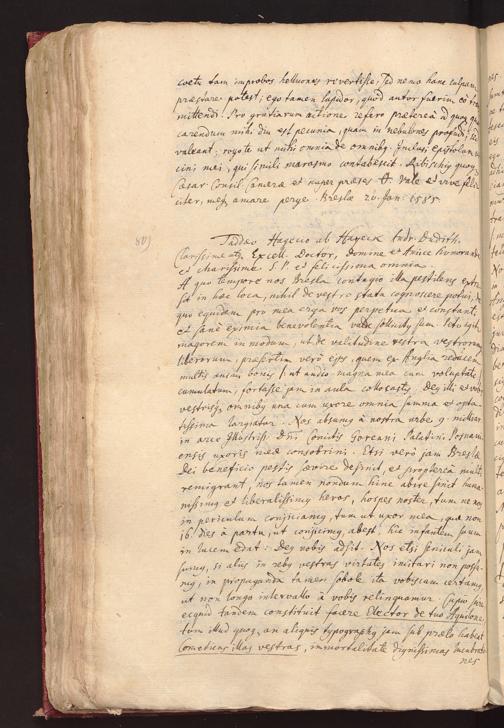 coetu tam improbos helluones revertisse; sed nemo hanc culpam
praestare potest; ego tamen lugidor, quod autor fuerim eo
mittendi. Pro gratiarum actione refero praeterea id quoque
carendum mihi diu est pecunia, quam in nebulones profudi;
valeant; rogote ut mihi omnia de omnibus. Inclusi epistolam
cini mei, qui simili marasmo contabescit. quoque
Caesar. Consil. Camerae et nuper praeses O. Vale et vive feli
citer, meque amare perge. Breslae 20. Jan: 1585.
80)
Taddeo Hagecio ab Hayeck Andr. Dudith.
Clarissime atque Excell. Doctor, Domine et Amice honorande
et charissime S. P. et felicissima omnia.
A quo tempore nos Bresla contagio illa pestilens extru
sit in haec loca, nihil de vestro statu cognoscere potui, de
quo equidem pro mea erga vos perpetua et constanti
et sane eximia benevolentia valde sollicitus sum. Peto igitur
magorem in modum, ut de valitudine vestra vestrorumque
liberorum, praesertim vero ejus, quem ex Anglia reducem
multis animi bonis (ut audio magna mea cum voluptate)
cumulatum, fortasse jam in aula collocastis. Deus illi et vobis
vestrisque omnibus una cum uxore omnia summa et opta
tissima largiatur. Nos absumus à nostra urbe 9 milliar.
in arce Illustriss. Dni Comitis Goreani Palatini Posnani
ensis uxoris meae consobrini. Etsi vero jam Breslae
Dei beneficio pestis saevire desinit, et propterea multi
remigrant, nos tamen nondum hinc abire sinit huma
nissimus et liberalissimus heros, hospes noster, tum ne nos
in periculum conjiciamus, tum ut uxor mea, quae non
16 dies à partu, ut conjicimus, abest, hic infantem suum
in lucem edat: Deus nobis adsit. Nos etsi seniculi jam
sumus, si alius in rebus vestras virtutes imitari non possu
mus, in propaganda tamen sobole ita vobiscum certamus,
ut non longo intervallo à vobis relinquamur. Cupio scire
ecquid tandem constituit facere Elector de tuo
tum illud quoque, an aliquis typographus jam sub praelo habeat
Cometicas illas vestras, immortalitate dignissimas lucubratio
nes